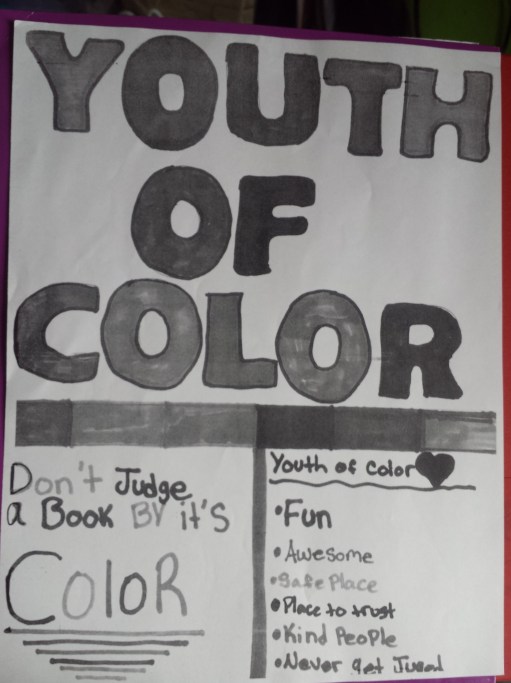 YOUTH
OF
COLOR
Don't Judge
a Book BY it's
Color
Youth of Color
•Fun
•Awesome
•Safe Place
•Place to trust
•Kind People
•Never get